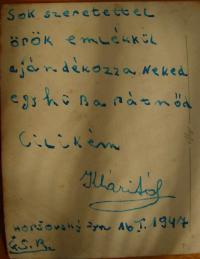 Sok szeretettel
örök emlékkül
ajándékozza Neked
egy hű Barátnőd
Cilikém
Máritól
16 I. 1947